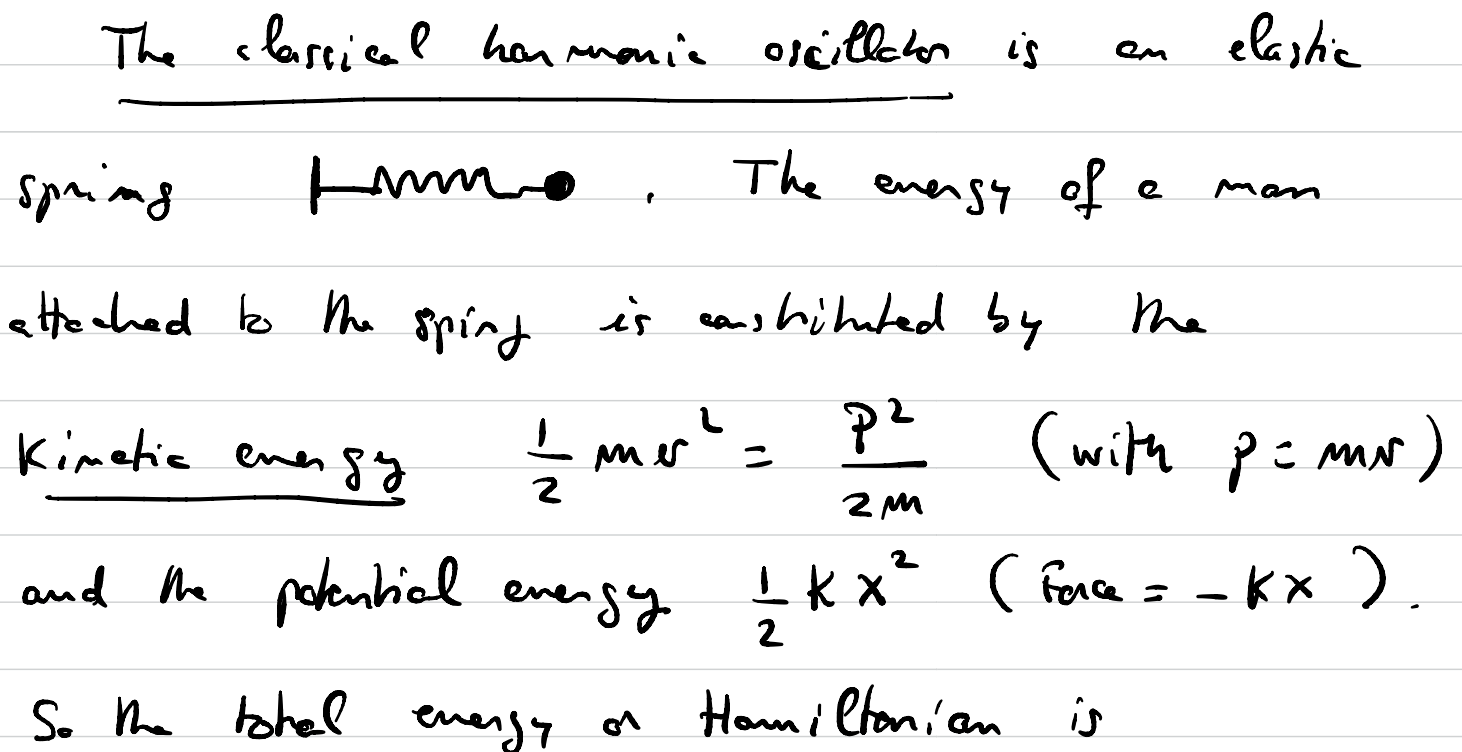 The classical harmonic oscillator is an elastic
spring . The energy of a mass
attached to the sping is constituted by the
Kinetic energy 1/2 mv² = P²/2m (with p = mv)
and the potential energy 1/2 Kx² (Force = - Kx).
So the total energy or Hamiltonian is